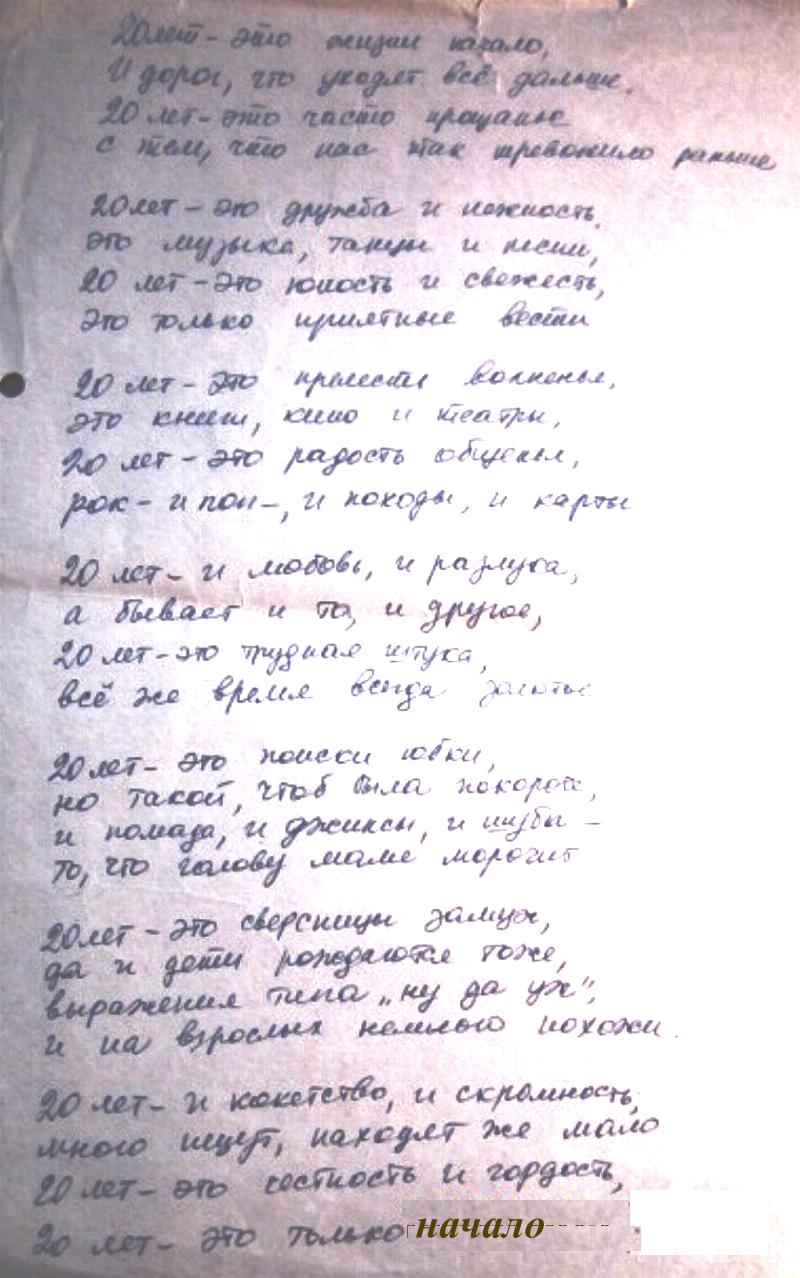 20 лет - это жизни начало,
И дорог, что уходят всё дальше.
20 лет - это часто прощанье
с тем, что нас так тревожило раньше
20 лет - это дружба и нежность,
это музыка, танцы и песни,
20 лет - это юность и свежесть,
это только приятные вести
20 лет - это прелесть волненья,
это книги, кино и театры,
20 лет - это радость общенья,
рок - и поп -, и походы, и карты
20 лет - и любовь, и разлука,
а бывает и то, и другое,
20 лет - это трудная штука,
всё же время всегда золотое
20 лет - это поиски юбки,
но такой, чтоб была покороче,
и помада, и джинсы, и шубы -
то, что голову маме морочит
20 лет - это сверсницы замуж,
да и дети рождаются тоже,
выражения типа „ну да уж",
и на взрослых немного похожи.
20 лет - и кокетство, и скромность,
много ищут, находят же мало
20 лет - это честность и гордость,
20 лет - это только начало